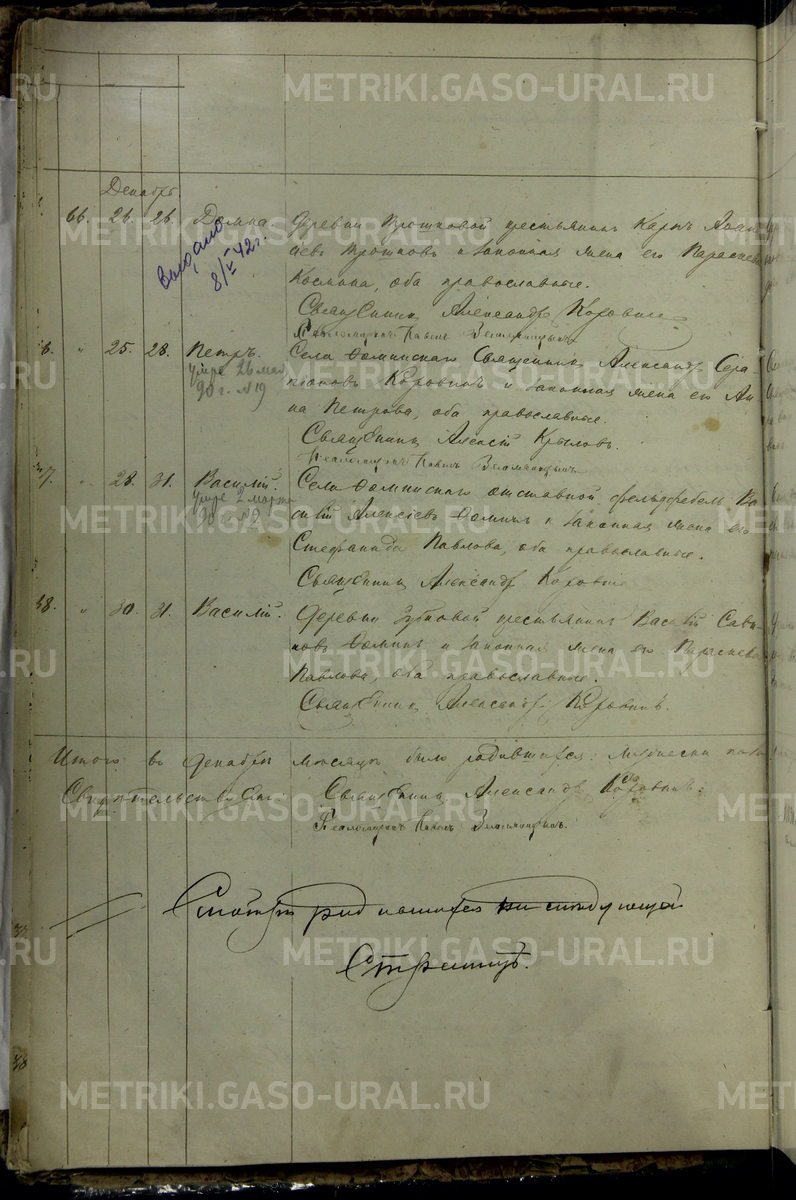 METRIKI.GASO-URAL.RU
Декабрь
66. 26. 26. Домна Деревни Трошковой крестьянин Карп Афана
сіевъ Трошковъ и законная жена его Параскева
Выдано
8/V 42 г.
Космина, оба православные.
Священникъ Александръ Коровинъ
Псаломщикъ Павелъ Земляницынъ
25. 28. Петръ. Села Фоминскаго Священникъ Александръ Сера
умре 26 мая
90 г. №19
піоновъ Коровинъ и законная жена его Ан
на Петрова, оба православные.
Священникъ Алексій Крыловъ.
Псаломщикъ Павелъ Земляницынъ
7. 28. 31. Василій. Села Фоминскаго отставной фельдфебель Ва
умре 2 марта
90 г. №2
силій Алексіевъ Фоминъ и законная жена его
Стефанида Павлова, оба православные.
Священникъ Александръ Коровинъ
38. 30. 31. Василій. Деревни Зубковой крестьянинъ Василій Сави
новъ Фоминъ и законная жена его Параскева
Павлова, оба православные.
Священникъ Александръ Коровинъ.
Итого въ Декабрѣ мѣсяцѣ было родившихся: мужескаго пола
Свидѣтельствуемъ: Священникъ Александръ Коровинъ.
Псаломщикъ Павелъ Земляницынъ.
на слѣдующей
Страницѣ.